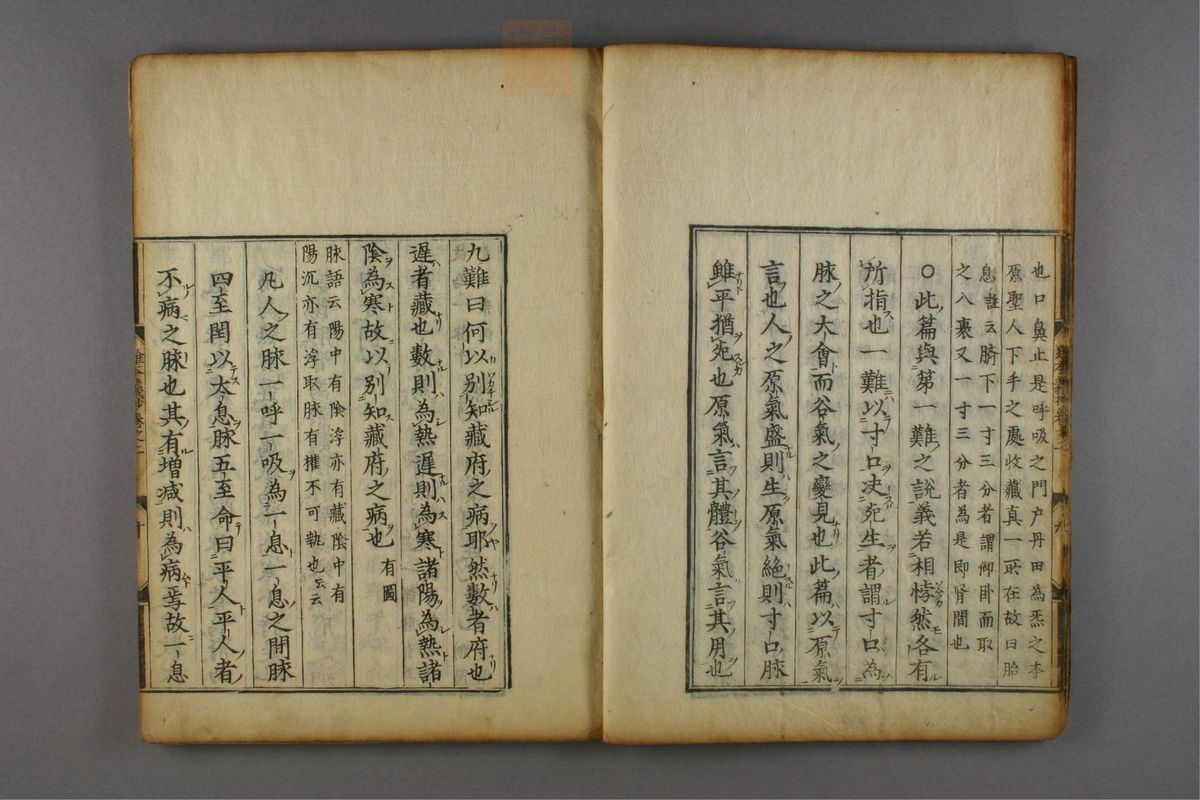 也口鼻止是呼吸之門户丹田為炁之本
原聖人下手之處收藏真一所在故曰胎
息註云臍下一寸三分者謂仰卧而取
之八裏又一寸三分者為是即腎間也
○此篇與第一難之說義若相悖然各有
所指也一難以寸口决死生者謂寸口為
脉之大會而谷氣之變見也此篇以原氣
言也人之原氣盛則生原氣絶則寸口脉
雖平猶死也原氣言其體谷氣言其用也
九難曰何以別知藏府之病耶然數者府也
遲者藏也數則為熱遲則為寒諸陽為熱諸
陰為寒故以別知藏府之病也 有圖
脉語云陽中有陰浮亦有藏陰中有
陽沉亦有浮取脉有權不可執也云云
凡人之脉一呼一吸為一息一息之間脉
四至閏以太息脉五至命曰平人平人者
不病之脉也其有增减則為病焉故一息